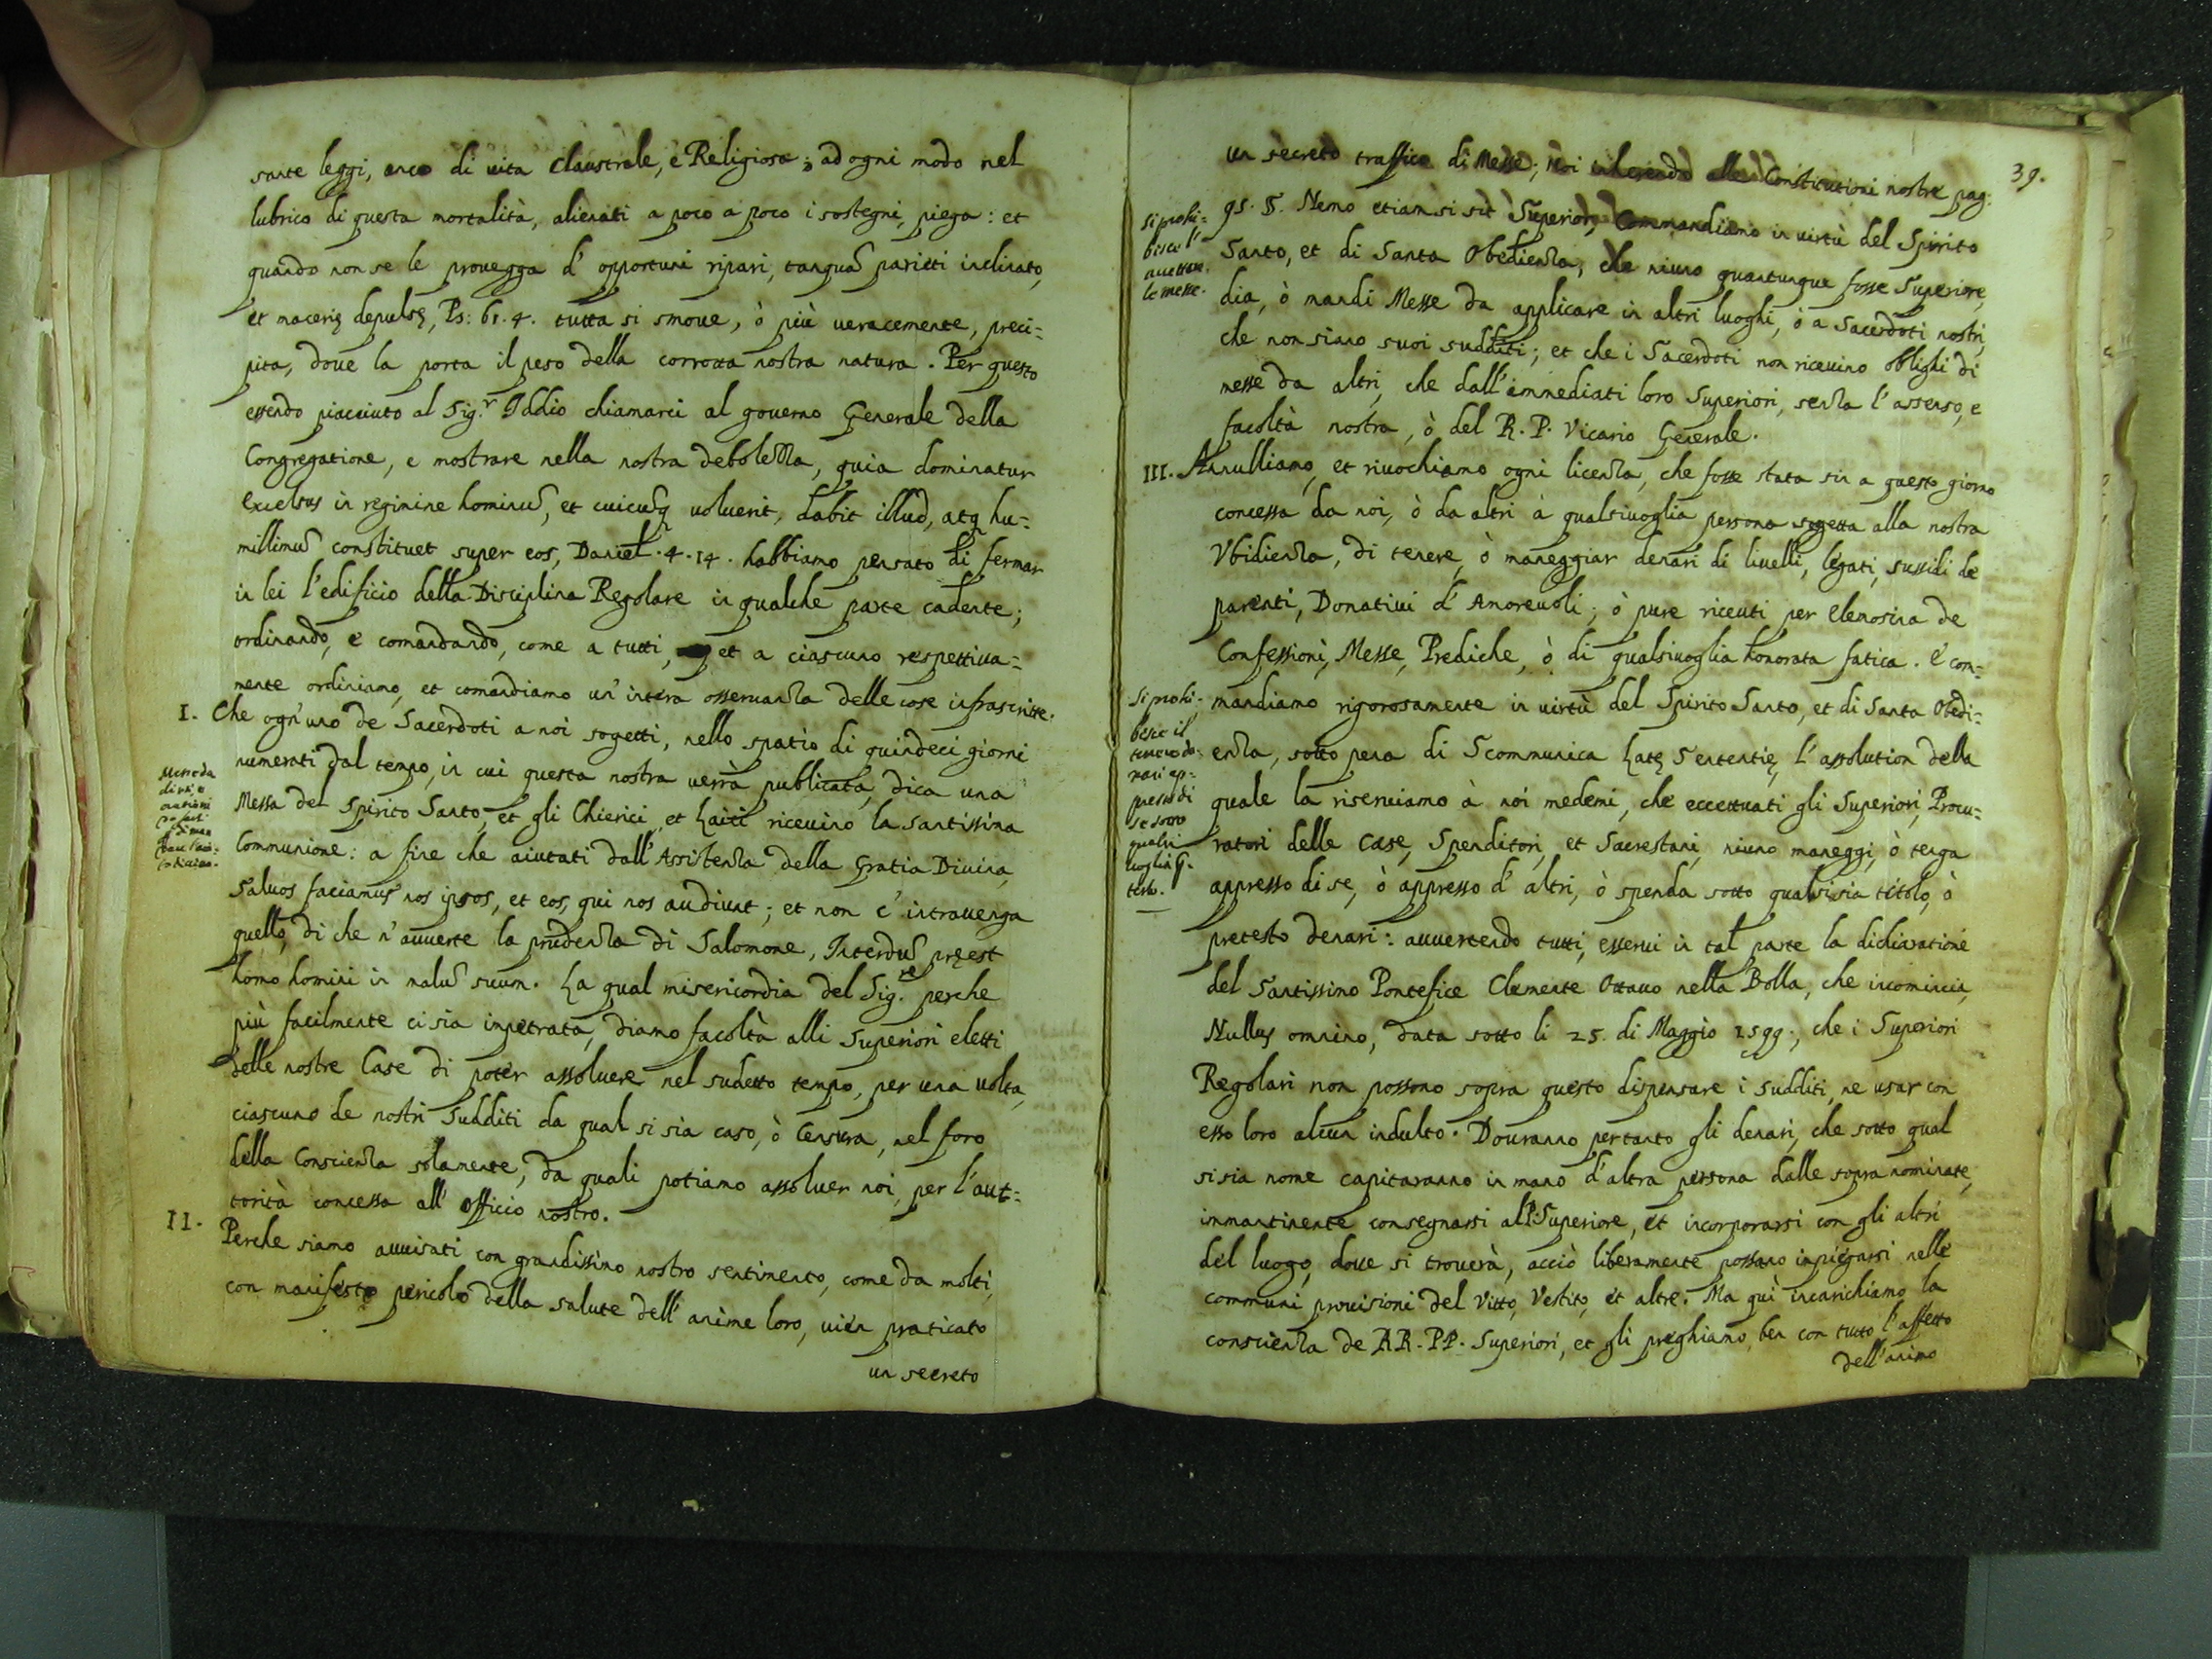 sante leggi, anco di uita Claustrale, e Religiosa; ad ogni modo nel
lubrico di questa mortalità, alienati a poco a poco i sostegni, piega: et
quando non se le prouegga d' opportuni ripari, tanquã parieti inclinato,
et macerię depulsę, Ps: 61. 4. tutta si smoue, ò più ueracemente, preci=
pita, doue la porta il peso della corrotta nostra natura. Per questo
essendo piacciuto al Sig.r Iddio chiamarci al gouerno Generale della
Congregatione, e mostrare nella nostra debolezza, quia dominatur
excelsus in regimine hominũ, et cuicũq uoluerit, dabit illud, atq hu=
millimũ constituet super eos, Daniel. 4. 14. habbiamo pensato di fermar
in lei l'edificio della Disciplina Regolare in qualche parte cadente;
ordinando, e comandando, come a tutti, et a ciascuno respettiua=
mente ordiniamo, et comandiamo un' intera osseruanza delle cose infrascritte.
I. Che ogn'uno de Sacerdoti a noi sogetti, nello spatio di quindeci giorni
numerati dal tempo, in cui questa nostra uerrà publicata, dica una
Messa del Spirito Santo, et gli Chierici, et Laici riceuino la Santissima
Communione: a fine che aiutati dall'Assistenza della Gratia Diuina,
Saluos faciamus nos ipsos, et eos, qui nos audiunt; et non c' intrauenga
quello, di che n'auuerte la prudenza di Salomone, Interdũ pręest
homo homini in malũ suum. La qual misericordia del Sig.re perche
più facilmente ci sia impetrata, diamo facoltà alli Superiori eletti
delle nostre Case di poter assoluere nel sudetto tempo, per una uolta,
ciascuno de nostri Sudditi da qual si sia caso, ò Censura, nel foro
della Conscienza solamente, da quali potiamo assoluer noi, per l'aut=
torità concessa all' Officio nostro.
II. Perche siamo auuisati con grandissimo nostro sentimento, come da molti,
con manifesto pericolo della salute dell' anime loro, uien praticato
un secreto
39.
un secreto traffico di Messe; Noi inherendo alle Constitutioni nostre pag.
95. §. Nemo etiamsi sit Superior, Commandiamo in uirtù del Spirito
Santo, et di Santa Obedienza, che niuno quantunque fosse Superiore,
dia, ò mandi Messe da applicare in altri luoghi, ò a Sacerdoti nostri,
che non siano suoi sudditi; et che i Sacerdoti non riceuino oblighi di
messe da altri, che dall' immediati loro Superiori, senza l' assenso, e
facoltà nostra, ò del R. P. Vicario Generale.
si prohi=
bisce l'
le messe.
III. Annulliamo, et riuochiamo ogni licenza, che fosse stata sin a questo giorno
concessa da noi, ò da altri à qualsiuoglia persona sogetta alla nostra
Vbidienza, di tenere, ò maneggiar denari di liuelli, legati, sussidi de
parenti, Donatiui d' Amoreuoli; ò pure riceuti per elemosina de
Confessioni, Messe, Prediche, ò di qualsiuoglia honorata fatica. E com=
mandiamo rigorosamente in uirtù del Spirito Santo, et di Santa Obedi=
enza, sotto pena di Scommunica Latę Sententię, l' assolution della
quale la riseruiamo à noi medemi, che eccettuati gli Superiori, Procu=
ratori delle Case, Spenditori, et Sacrestani, niuno maneggi, ò tenga
appresso di se, ò appresso d' altri, ò spenda sotto qualsisia titolo, ò
pretesto denari: auuertendo tutti, esserui in tal parte la dichiaratione
del Santissimo Pontefice Clemente Ottauo nella Bolla, che incomincia,
Nullus omnino, data sotto li 25. di Maggio 1599. che i Superiori
Regolari non possono sopra questo dispensare i sudditi, ne usar con
esso loro alcun indulto. Douranno pertanto gli denari, che sotto qual
si sia nome capitaranno in mano d'altra persona dalle sopra nominate,
immantinente consegnarsi al P. Superiore, et incorporarsi con gli altri
del luogo, doue si trouerà, acciò liberamente possano impiegarsi nelle
communi prouisioni del Vitto, Vestito, et altre. Ma quì incarichiamo la
conscienza de RR. PP. Superiori, et gli preghiamo ben con tutto l'affetto
dell' animo
si prohi=
bisce il
tenere de=
nari ap=
presso di
se sotto
qualsi
uoglia
testo.